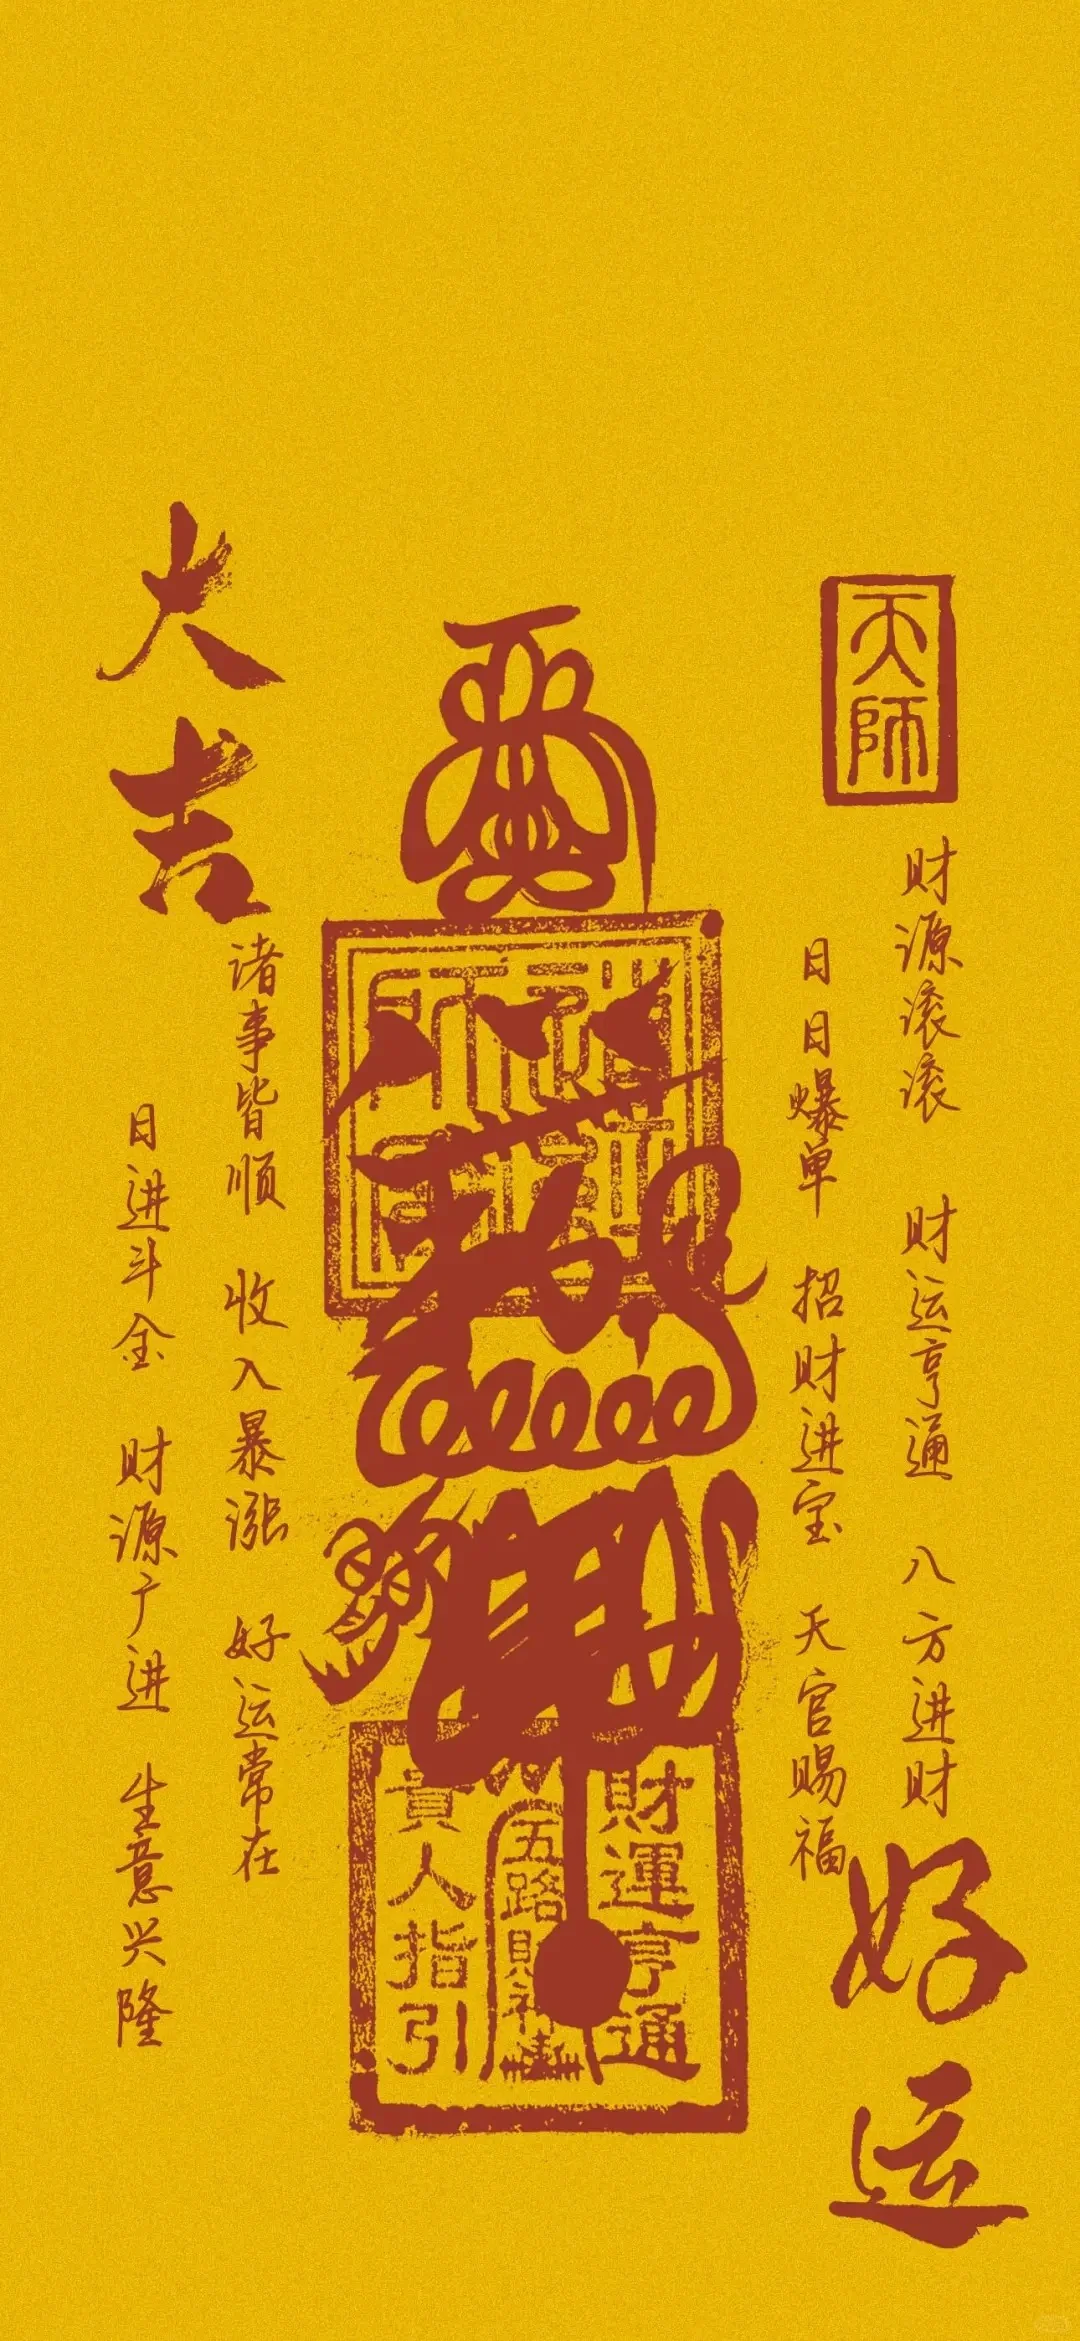 天师
财源滚滚 财运亨通 八方进财
日日爆单 招财进宝 天官赐福
好运
財運亨通
五路財神
貴人指引
大吉
诸事皆顺 收入暴涨 好运常在
日进斗金 财源广进 生意兴隆